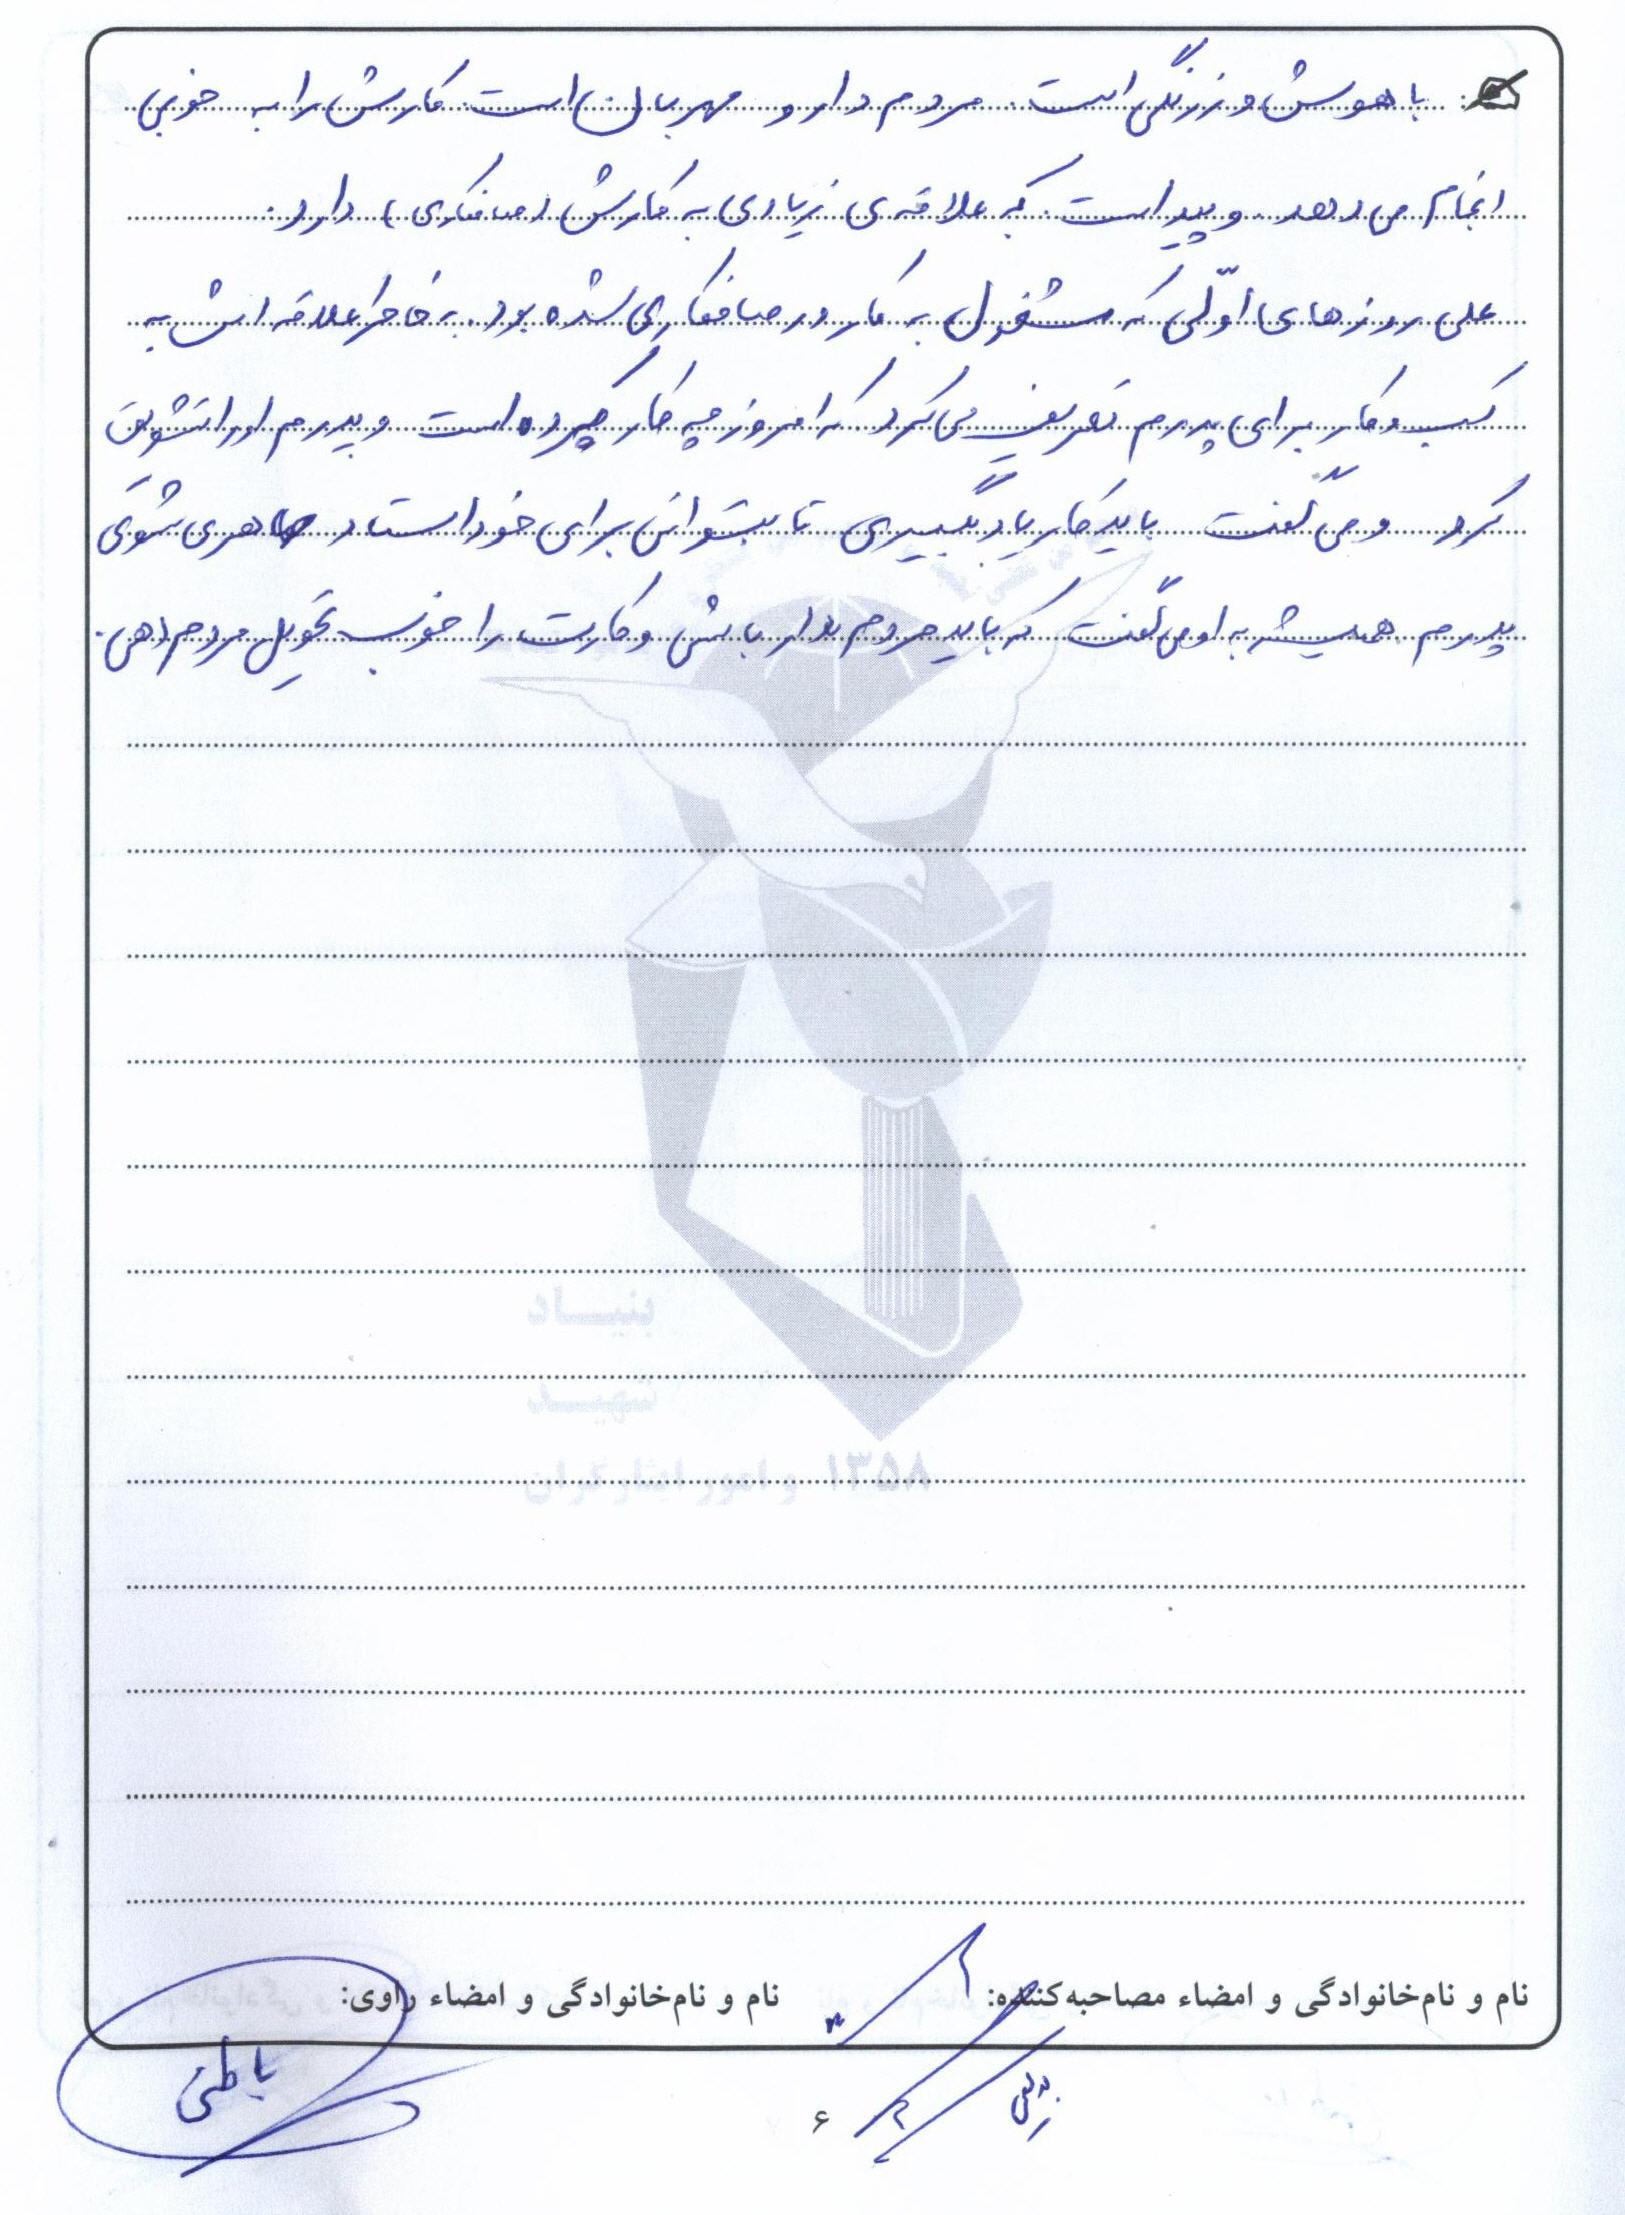 با هوش و زرنگی است. مردم دار و مهربان است کارش را به خوبی
انجام می دهد. و پیداست که علاقه ی زیادی به کارش (صافکاری) دارد.
علی روزهای اوّلی که مشغول به کار در صافکاری شده بود. به خاطر علاقه اش به
کسب و کار برای پدرم تعریف می کرد که امروز چه کار کرده است و پدرم او را تشویق
کرد و می گفت باید کار یاد بگیری تا بتوانی برای خود استاد ماهری شوی
پدرم همیشه به او می گفت که باید مردم دار باشی و کارت را خوب تحویل مردم دهی.
بنیاد
شهید
۱۳۵۸ و امور ایثارگران
نام و نام‌خانوادگی و امضاء مصاحبه‌کننده: نام و نام‌خانوادگی و امضاء راوی:
باطنی
۶